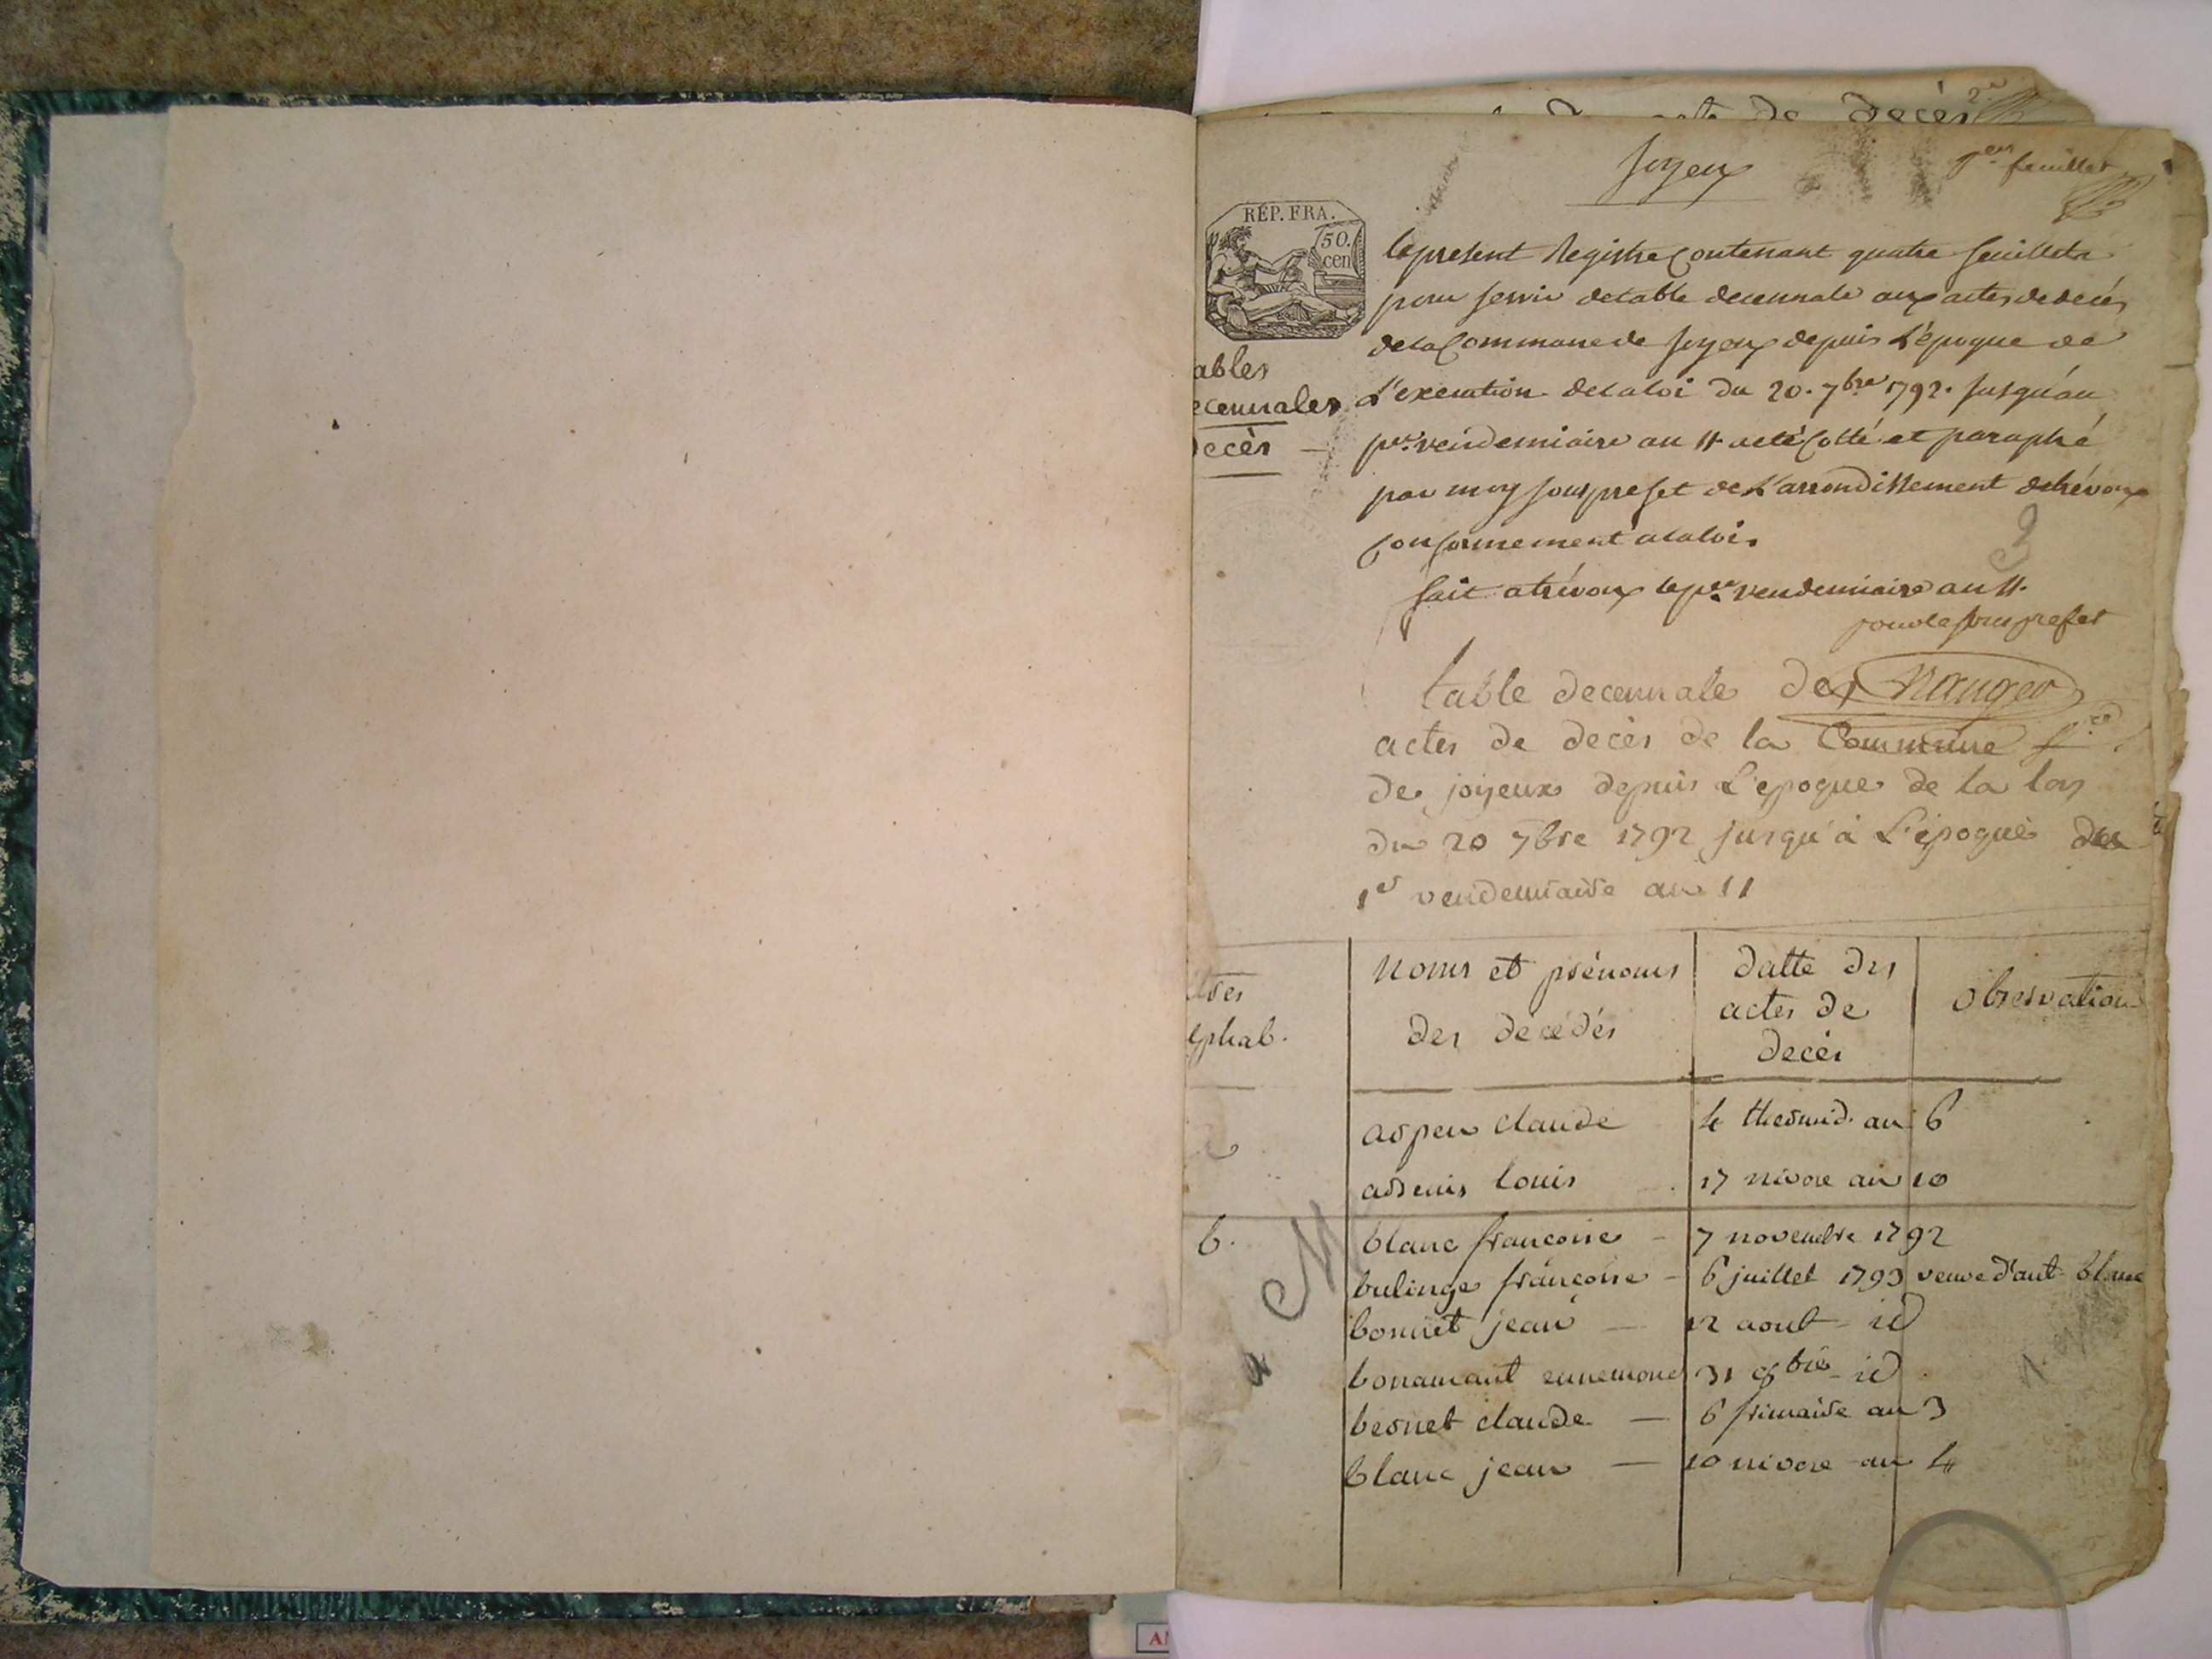 de decès
joyeux
1er feuillet
REP. FRA.
50.
cen
le present Registre Contenant quatre feuillets
pour servir de table decennale aux actes de decés
de la Commune de joyeux depuis L'époque de
L'execution de la loi du 20. 7bre 1792. jusqu'au
per. vendemiaire an 11 a eté Cotté et paraphé
par moy sous prefet de L'arrondissement de trévoux
Conformement a la loi.
fait a trévoux le per. vendemiaire an 11.
pour le sous prefet
ables
ecennales
ecès —
table decennale des
actes de decès de la Commune
de joyeux depuis L'epoque de la loy
du 20 7bre 1792 jusqu'à L'époque du
1er vendemiaire an 11
tres
lphab.
noms et prénoms
des décédés
datte des
actes de
decès
observation
arpen claude 4 thermid. an 6
arsenis louis 17 nivose an 10
b. blanc francoise - 7 novembre 1792
bulinge françoise - 6 juillet 1793 veuve d'ant. blanc
bonnet jean — 12 aout - id
bonamant ennemond 31 8bre - id
bernet claude — 6 frimaire an 3
blanc jean — 10 nivose an 4